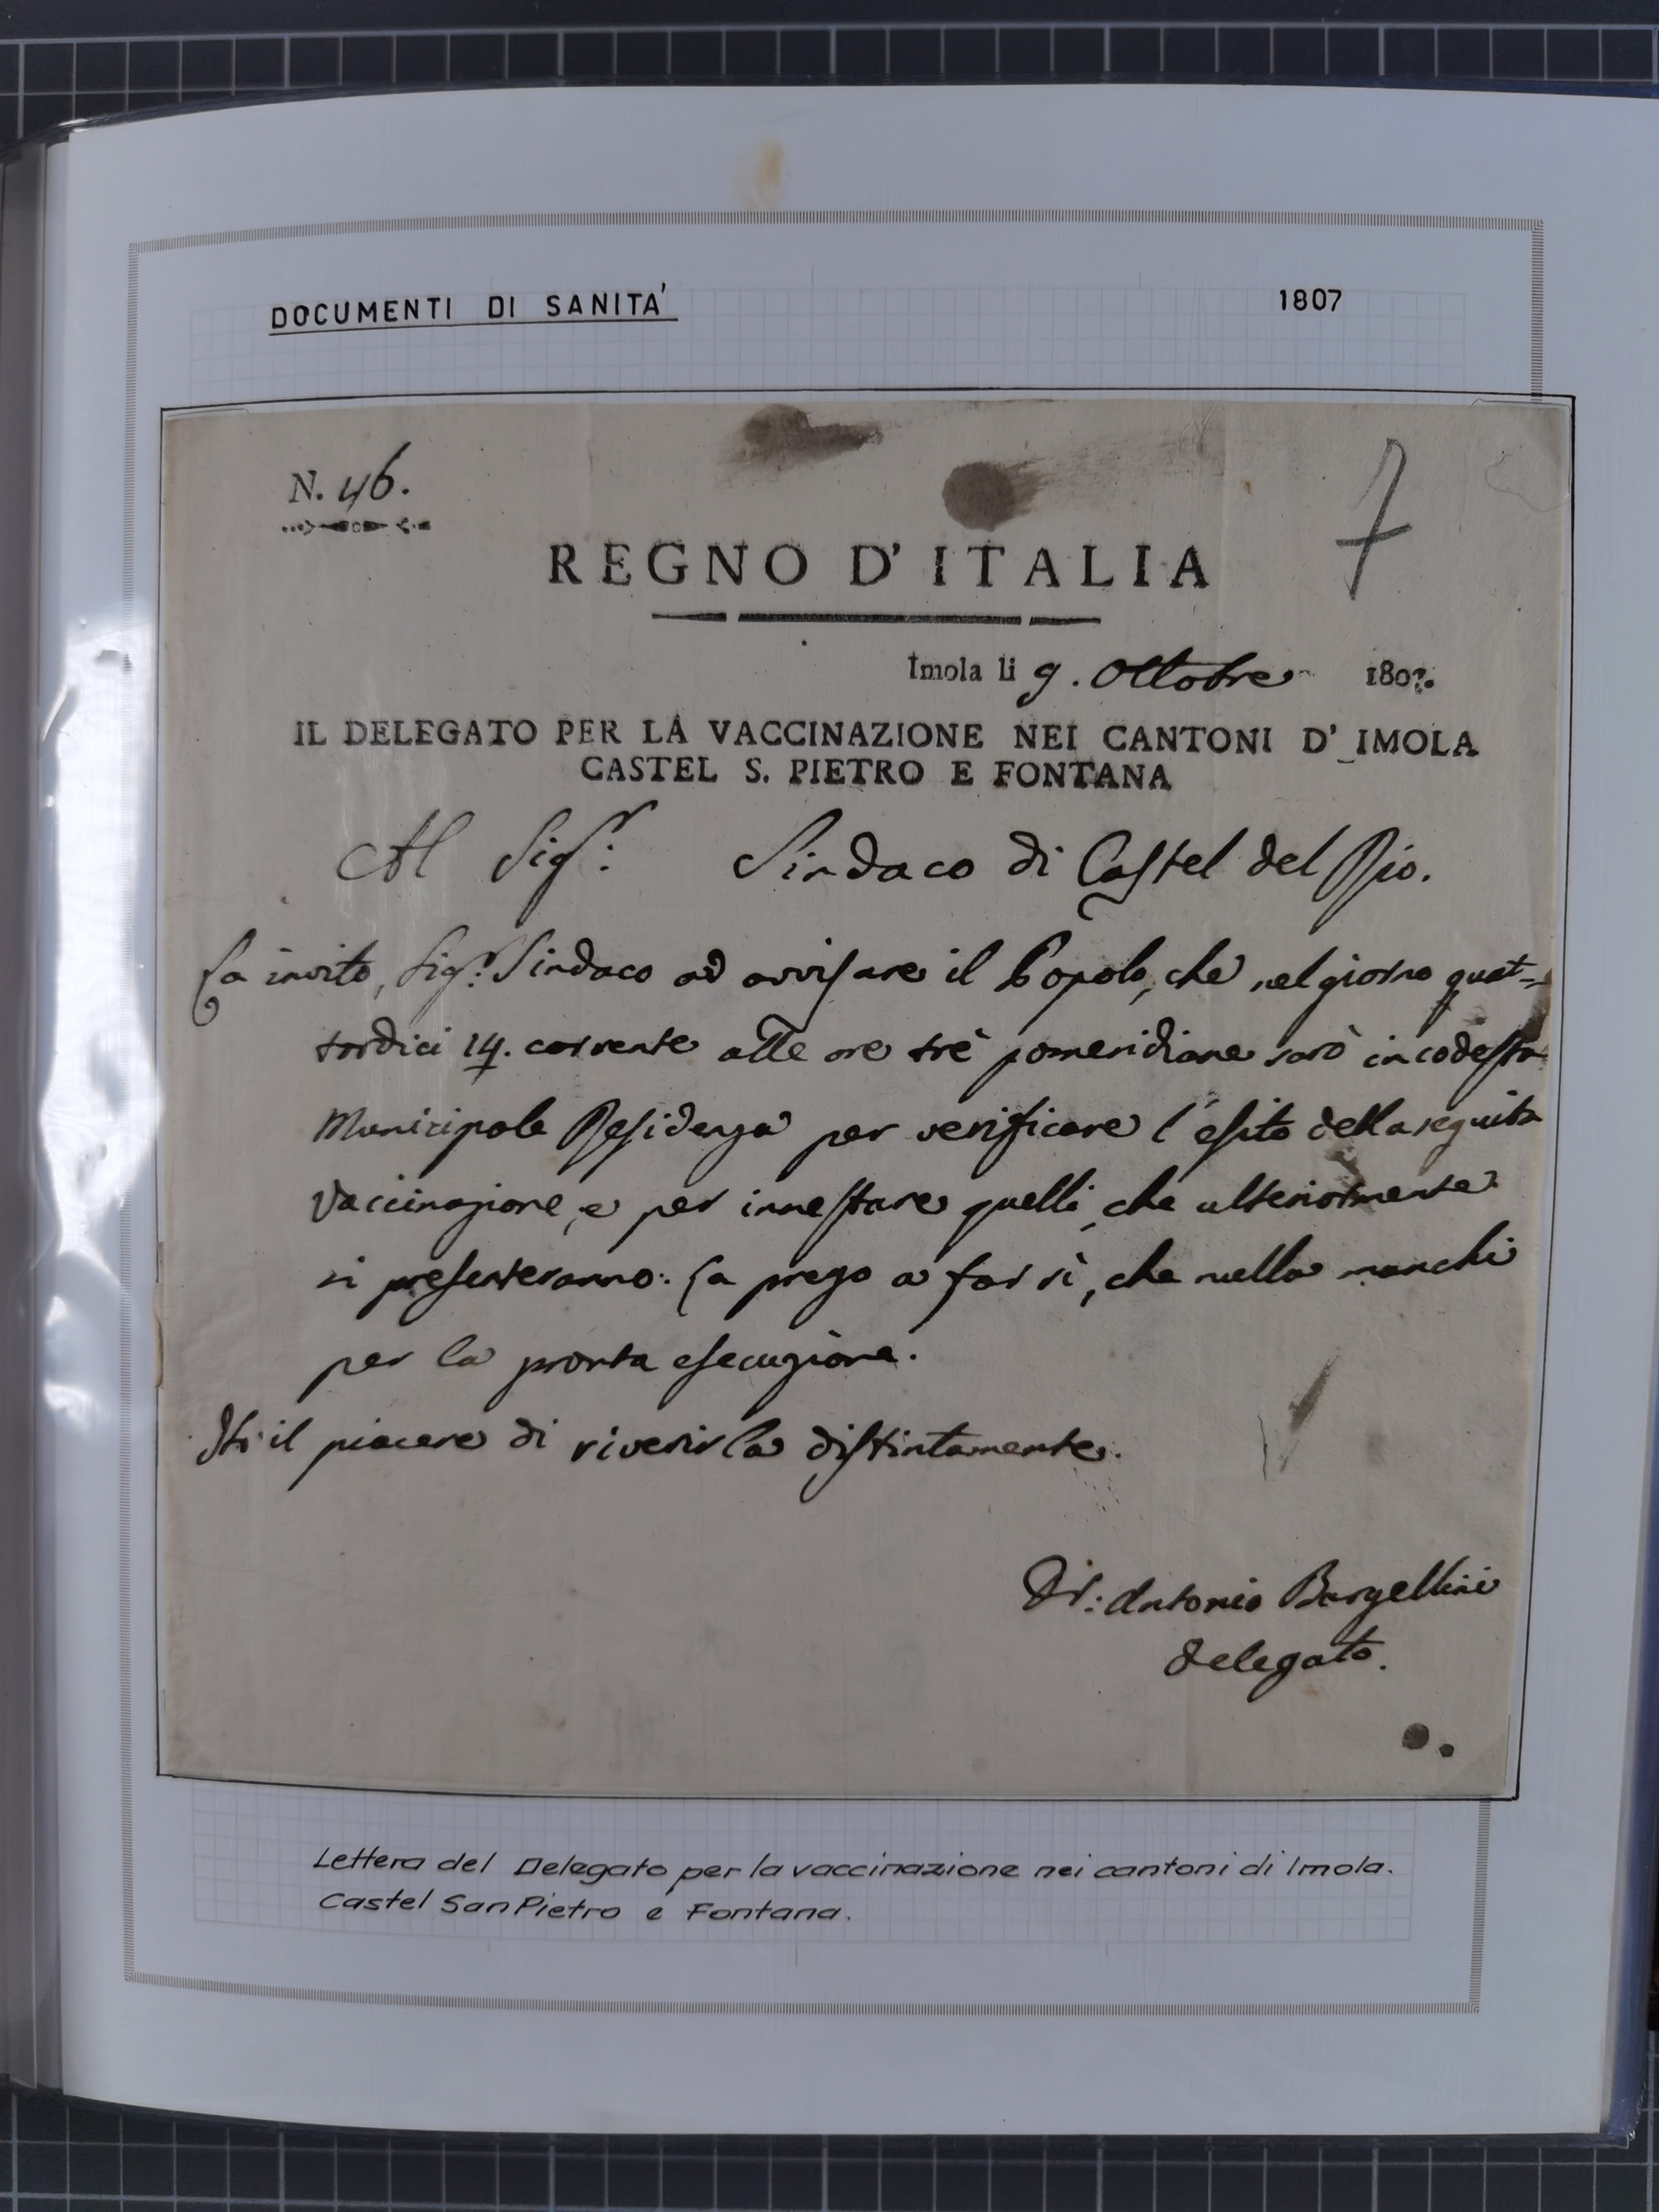 DOCUMENTI DI SANITA'
1807
N. 46.
7
REGNO D' ITALIA
Imola li 9. Ottobre 1807.
IL DELEGATO PER LA VACCINAZIONE NEI CANTONI D' IMOLA
CASTEL S. PIETRO E FONTANA
Al Sigr: Sindaco di Castel del Rio.
La invito, Sigr. Sindaco ad avvisare il Popolo, che nel giorno quat=
tordici 14. corrente alle ore trè pomeridiane sarò in codesta
Municipale Residenza per verificare l'esito della seguita
Vaccinazione, e per innestare quelli, che ulteriormente
si presenteranno. La prego a far sì, che nulla manchi
per la pronta esecuzione.
il piacere di riverirla distintamente.
Dr: Antonio Bargellini
Delegato.
Lettera del Delegato per la vaccinazione nei cantoni di Imola.
Castel San Pietro e Fontana.